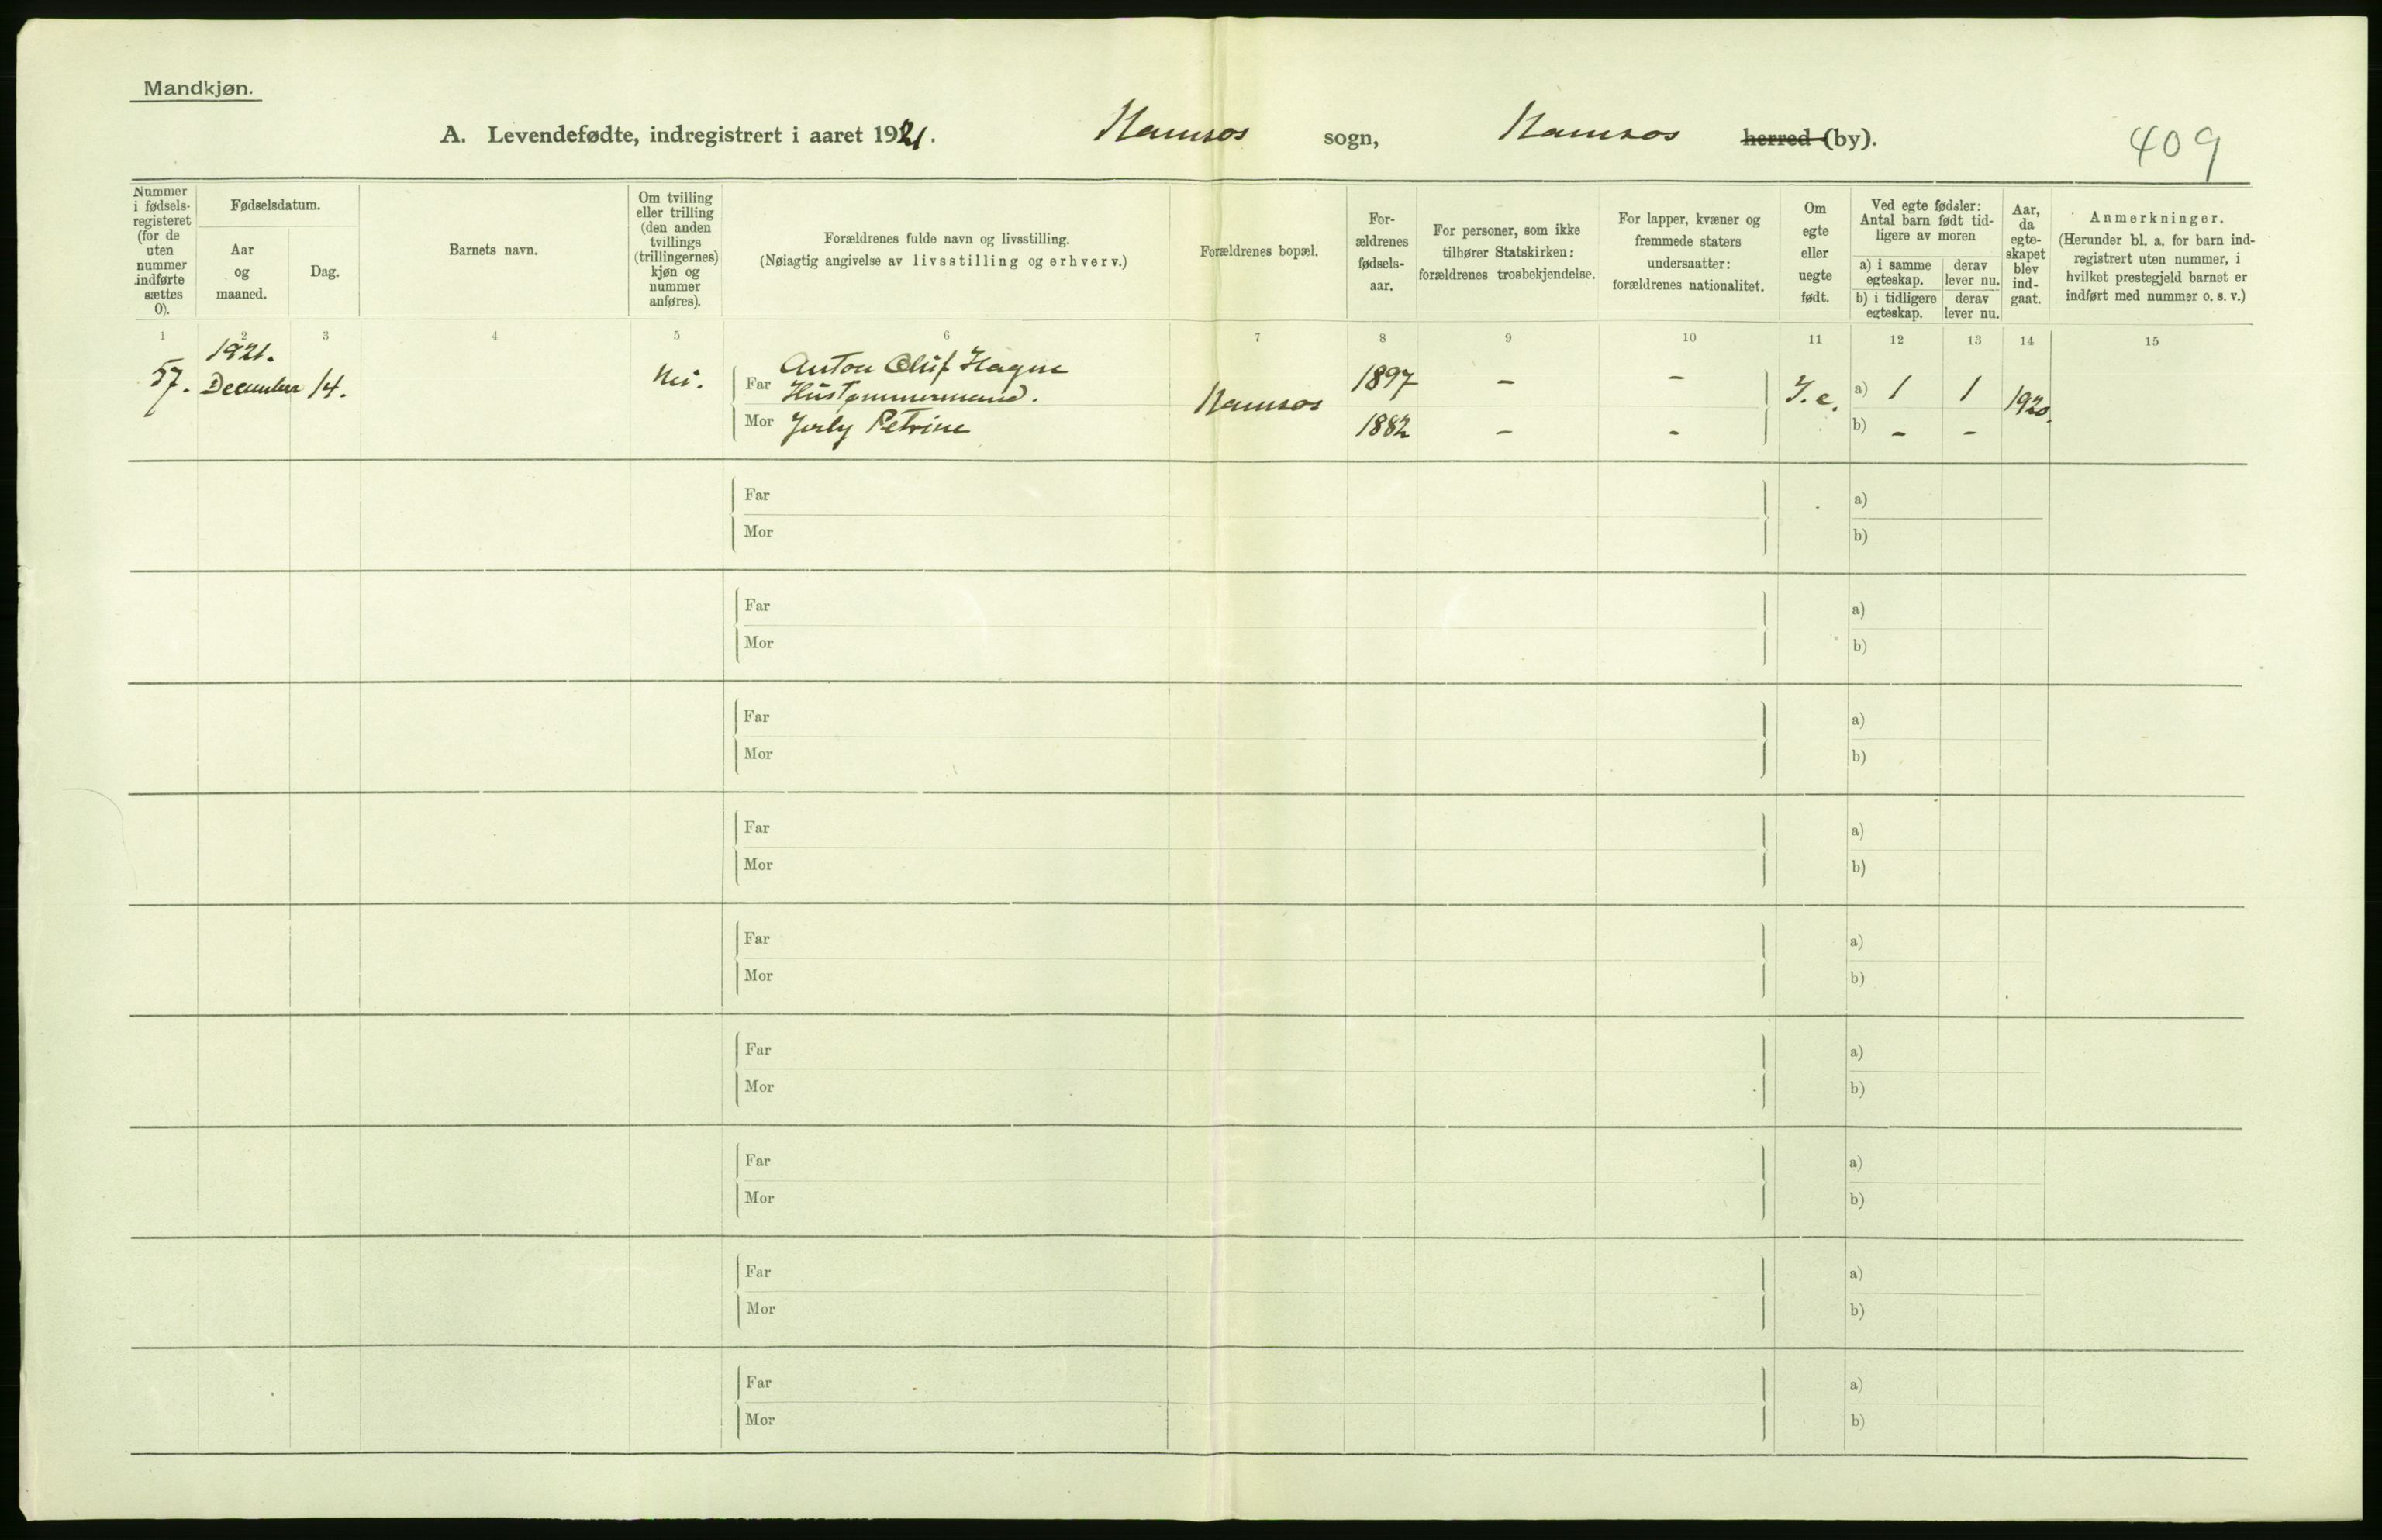 Mandkjøn.
A. Levendefødte, indregistrert i aaret 1921. Namsos sogn, Namsos herred (by). 409
Nummer i fødsels-registeret (for de uten nummer indførte sættes 0).
Fødselsdatum.
Aar og maaned.
Dag.
Barnets navn.
Om tvilling eller trilling (den anden tvillings (trillingernes) kjøn og nummer anføres).
Forældrenes fulde navn og livsstilling.
(Nøiagtig angivelse av livsstilling og erhverv.)
Forældrenes bopæl.
For-ældrenes fødsels-aar.
For personer, som ikke tilhører Statskirken: forældrenes trosbekjendelse.
For lapper, kvæner og fremmede staters undersaatter: forældrenes nationalitet.
Om egte eller uegte født.
Ved egte fødsler: Antal barn født tid-ligere av moren
a) i samme egteskap.
derav lever nu.
b) i tidligere egteskap.
derav lever nu.
Aar, da egte-skapet blev ind-gaat.
Anmerkninger.
(Herunder bl. a. for barn ind-registrert uten nummer, i hvilket prestegjeld barnet er indført med nummer o. s. v.)
1 2 3 4 5 6 7 8 9 10 11 12 13 14 15
1921.
57. December 14. Nei. Far Anton Oluf Hagen
Hustømmermand. Namsos 1897 – – I. e. a) 1 1 1920.
Mor Petrine 1882 – – b) – –
Far a)
Mor b)
Far a)
Mor b)
Far a)
Mor b)
Far a)
Mor b)
Far a)
Mor b)
Far a)
Mor b)
Far a)
Mor b)
Far a)
Mor b)
Far a)
Mor b)